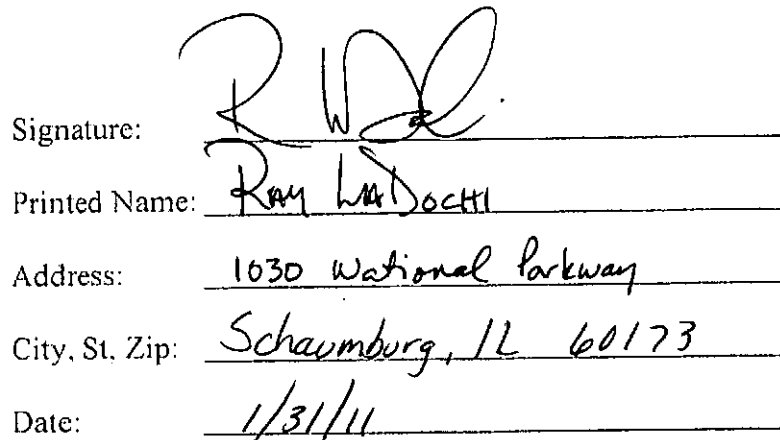 Signature:
Printed Name: RAY WADOCHI
Address: 1030 National Parkway
City, St, Zip: Schaumburg, IL 60173
Date: 1/31/11